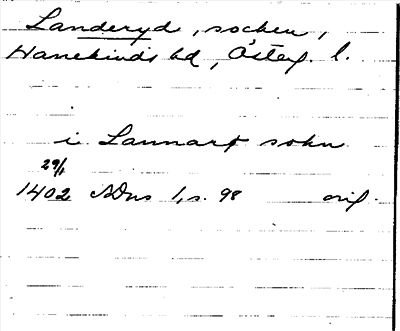 Landeryd, socken,
Hanekinds hd, Österg. l.
i Lannarø sokn
29/1
1402 SDns 1, s. 98 orig.